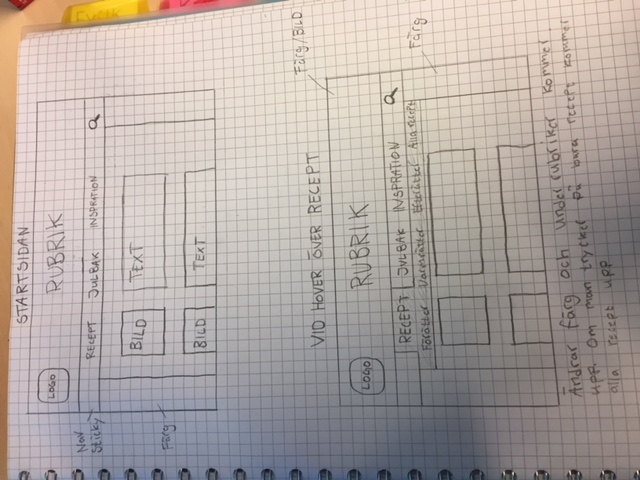 STARTSIDAN
LOGO
RUBRIK
RECEPT JULBAK INSPRATION
BILD TEXT
BILD TEXT
Nav
Sticky
Färg
VID HOVER ÖVER RECEPT
Färg/BILD
LOGO
RUBRIK
RECEPT JULBAK INSPRATION
Förätter Varmrätter Efterrätter Alla recept
Färg
Ändrar färg och under rubriker kommer
upp om man trycker på bara recept kommer
alla recept upp